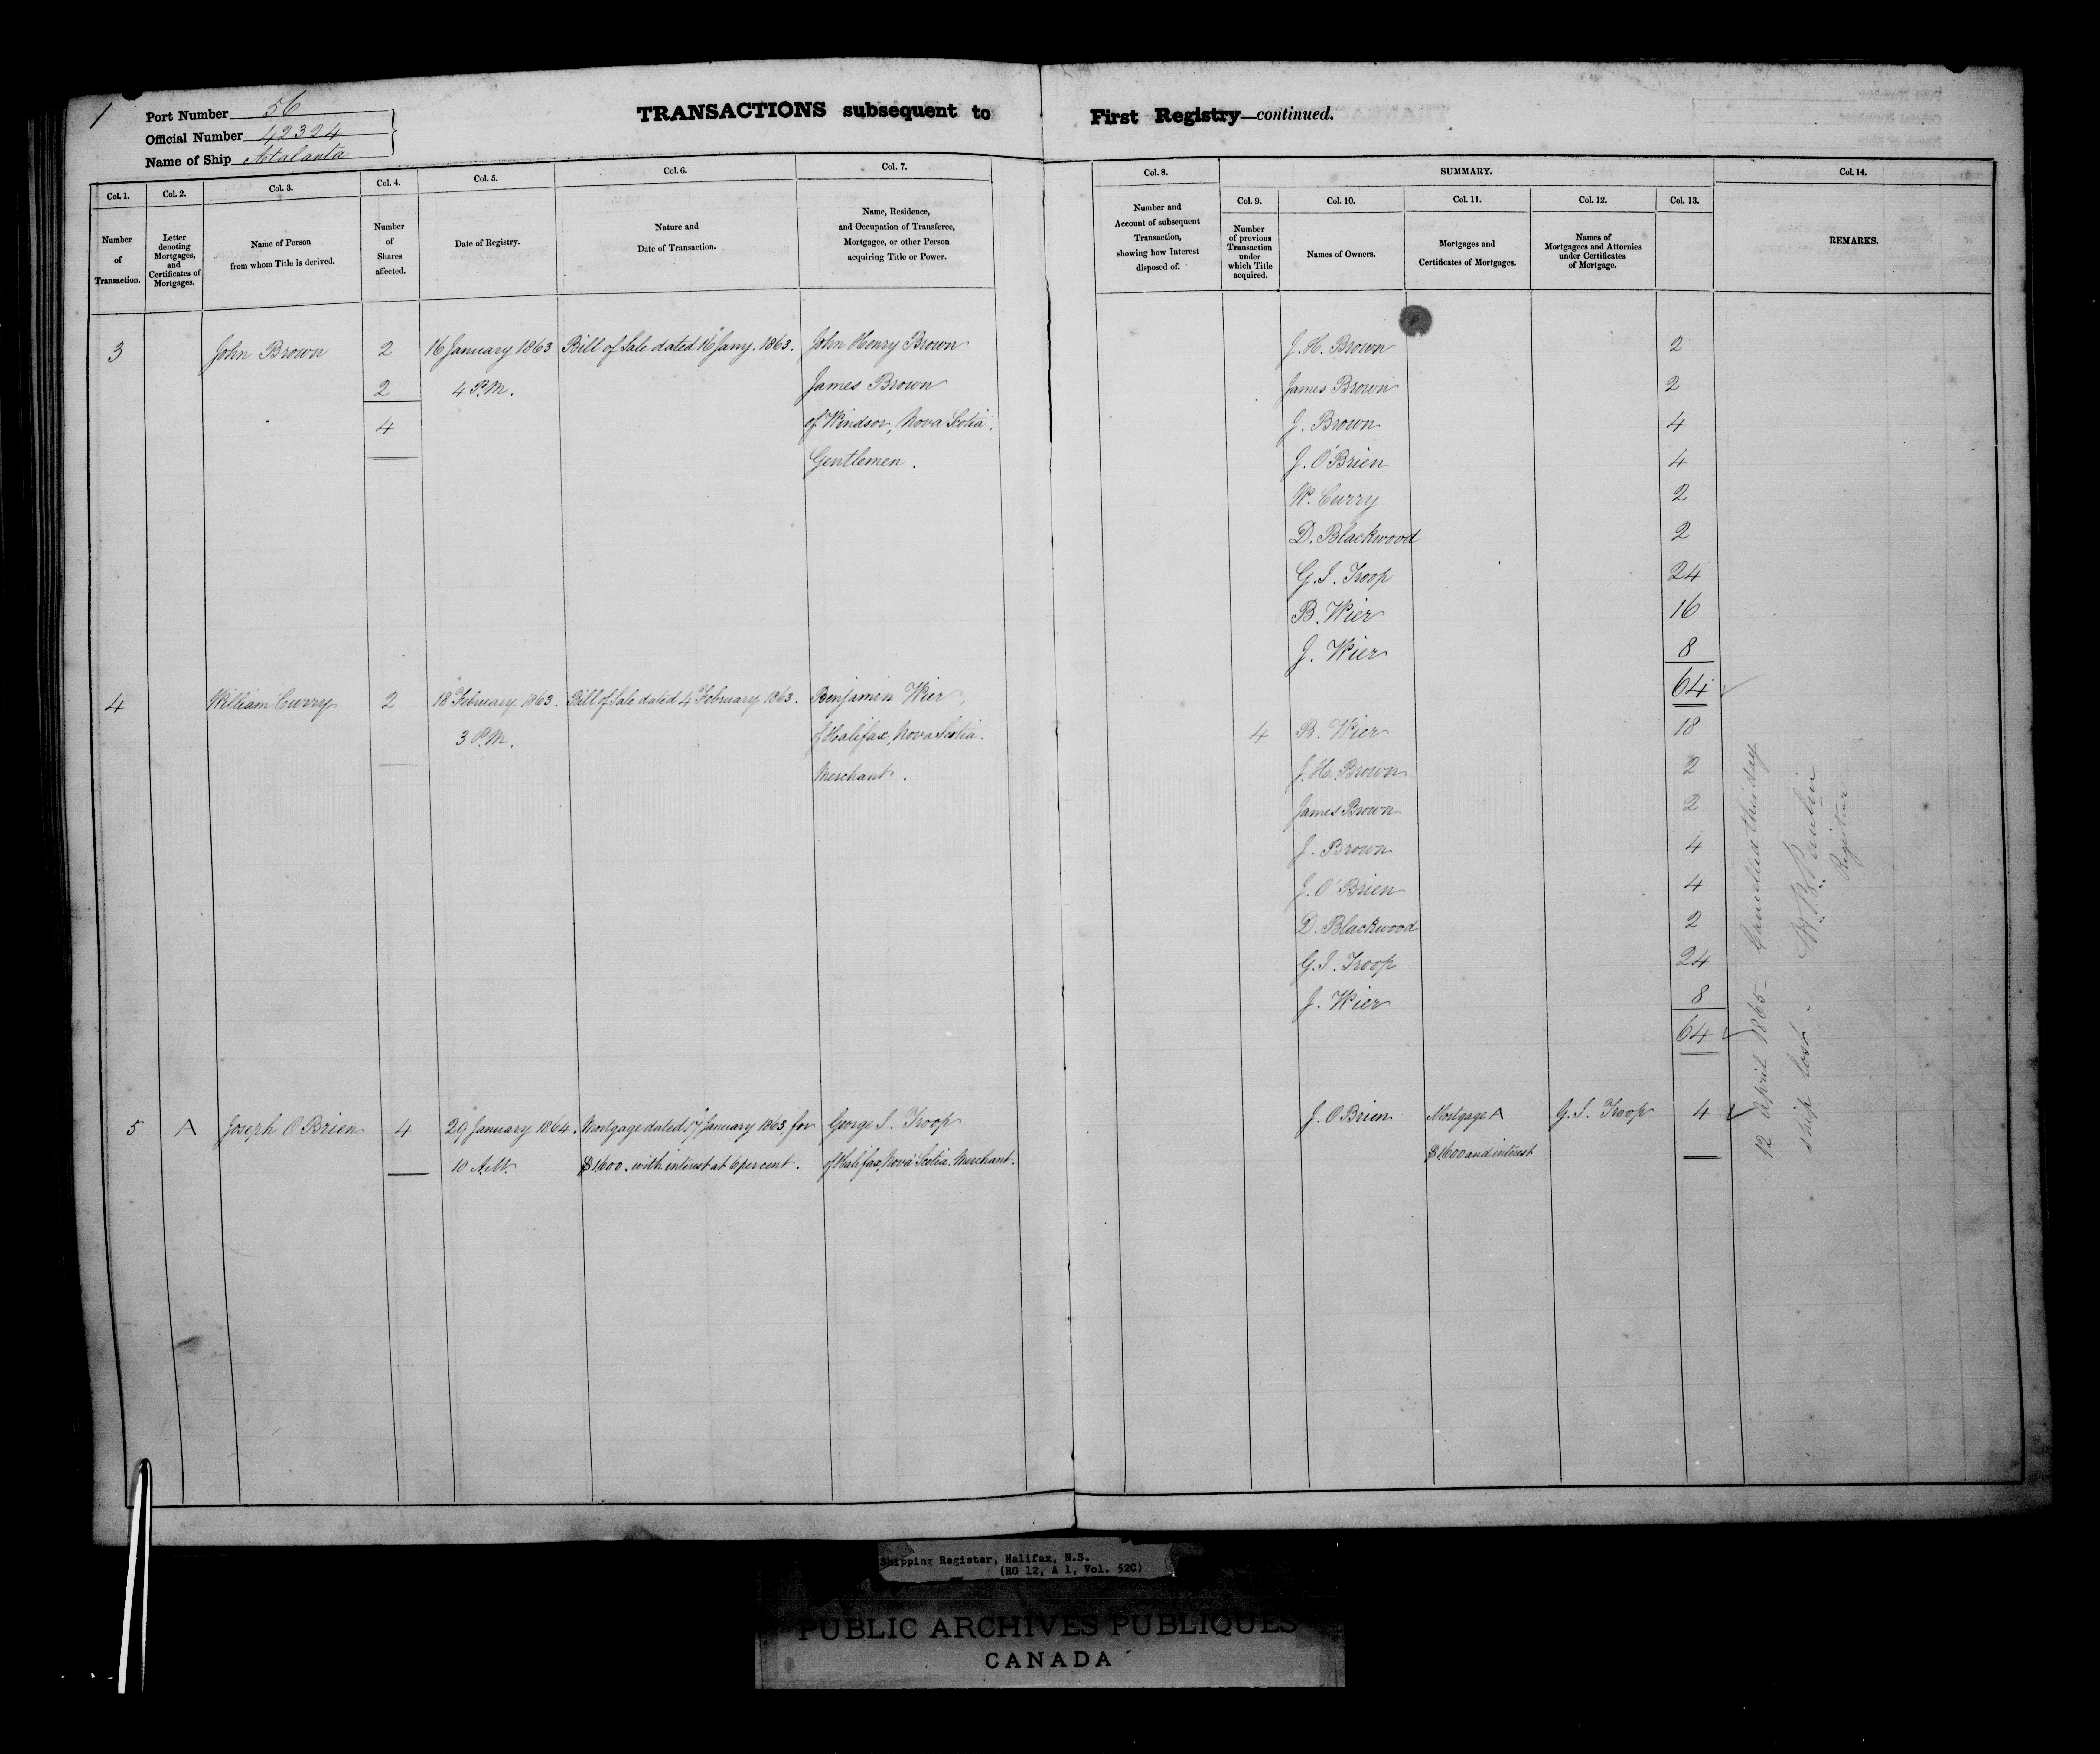 1
Port Number 56
Official Number 42324
Name of Ship Atalanta
TRANSACTIONS subsequent to First Registry—continued.
Col. 1. Col. 2. Col. 3. Col. 4. Col. 5. Col. 6. Col. 7.
Number of Transaction.
Letter denoting Mortgages, and Certificates of Mortgages.
Name of Person from whom Title is derived.
Number of Shares affected.
Date of Registry.
Nature and Date of Transaction.
Name, Residence, and Occupation of Transferee, Mortgagee, or other Person acquiring Title or Power.
3 John Brown 2 16 January 1863 Bill of Sale dated 16 Jany. 1863. John Henry Brown
2 4 P.M. James Brown
4 of Windsor, Nova Scotia.
Gentlemen.
4 William Curry 2 18 February 1863. Bill of Sale dated 4 February 1863. Benjamin Wier,
3 P.M. of Halifax, Nova Scotia.
Merchant.
5 A Joseph O'Brien 4 29 January 1864. Mortgage dated 17 January 1863 for George J. Troop
10 A.M. $1600. with interest at 6 per cent. of Halifax, Nova Scotia. Merchant.
Col. 8. SUMMARY. Col. 14.
Col. 9. Col. 10. Col. 11. Col. 12. Col. 13.
Number and Account of subsequent Transaction, showing how Interest disposed of.
Number of previous Transaction under which Title acquired.
Names of Owners.
Mortgages and Certificates of Mortgages.
Names of Mortgagees and Attornies under Certificates of Mortgage.
REMARKS.
J. H. Brown 2
James Brown 2
J. Brown 4
J. O'Brien 4
W. Curry 2
D. Blackwood 2
G. J. Troop 24
B. Wier 16
J. Wier 8
64
4 B. Wier 18
J. H. Brown 2
James Brown 2
J. Brown 4
J. O'Brien 4
D. Blackwood 2
G. J. Troop 24
J. Wier 8
64
J. O'Brien Mortgage A G. J. Troop 4
$1600 and interest
12 April 1865 - Cancelled this day
ship lost.
Registrar
Shipping Register, Halifax, N.S.
(RG 12, A 1, Vol. 52C)
PUBLIC ARCHIVES PUBLIQUES
CANADA